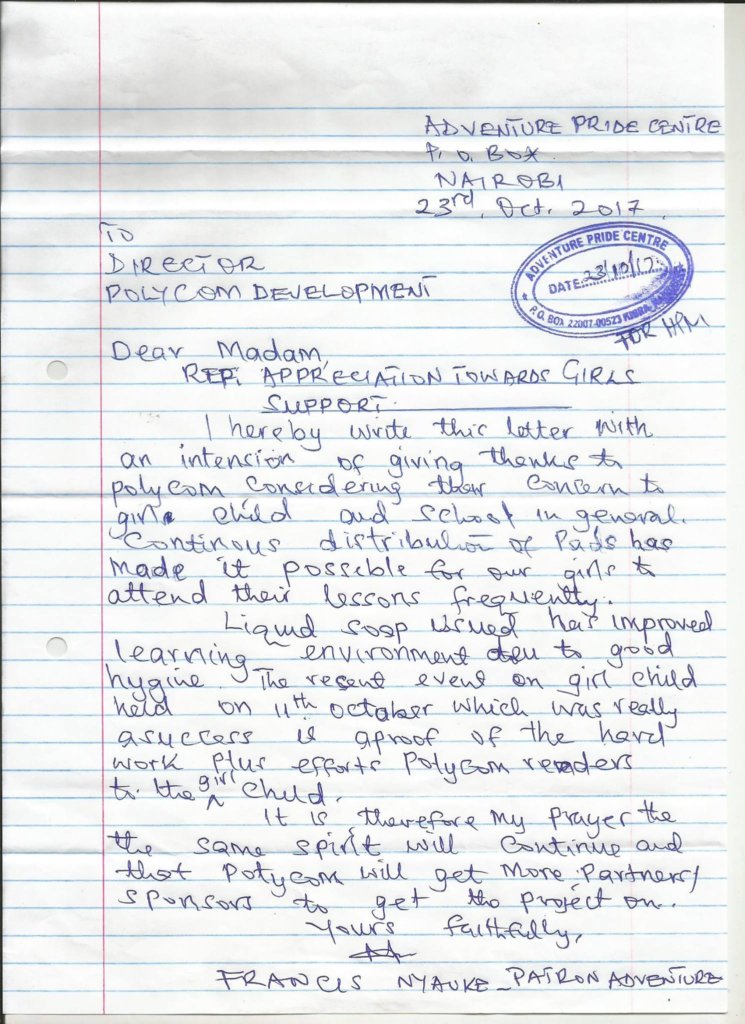 ADVENTURE PRIDE CENTRE
P. O. BOX
NAIROBI
23rd, Oct. 2017.
TO
DIRECTOR
POLYCOM DEVELOPMENT
ADVENTURE PRIDE CENTRE
DATE 23/10/17
P.O. BOX 22007-00523 KIBRA,
FOR HM
Dear Madam,
REF: APPRECIATION TOWARDS GIRLS
SUPPORT.
I hereby write this letter with
an intension of giving thanks to
polycom considering their concern to
girl child and school in general.
Continous distribution of Pads has
made it possible for our girls to
attend their lessons frequently.
Liquid soap issued has improved
learning environment due to good
hygine. The recent event on girl child
held on 11th october which was really
asuccess is aproof of the hard
work plus efforts Polycom renders
to the girl child.
It is therefore my prayer the
the same spirit will continue and
that Polycom will get more partners/
sponsors to get the project on.
Yours faithfully,
FRANCIS NYAUKE - PATRON ADVENTURE